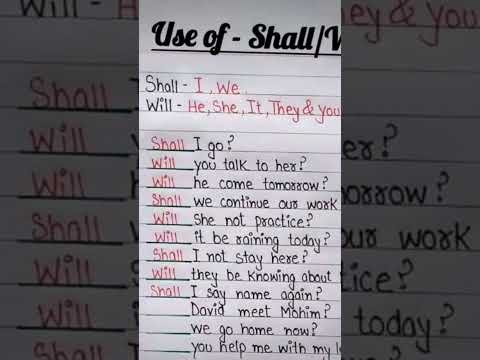 Use of - Shall/
Shall - I, We.
Will - He, She, It, They & you
Shall I go?
Will you talk to her?
Will he come tomorrow?
Shall we continue our work
Will she not practice?
Will it be raining today?
Shall I not stay here?
Will they be knowing about
Shall I say name again?
David meet Mohim?
we go home now?
you help me with my